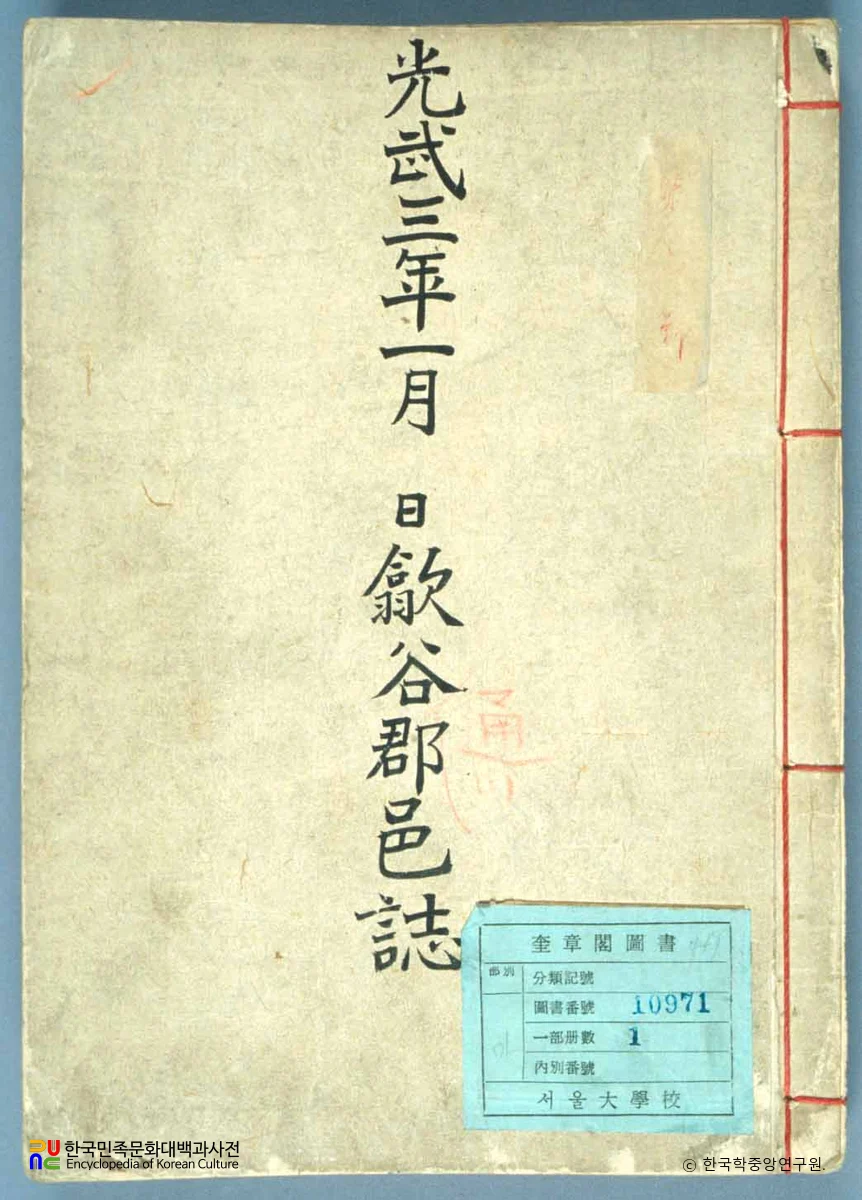 光武三年一月 日歙谷郡邑誌
奎章閣圖書
部別
分類記號
圖書番號 10971
一部册數 1
內別番號
서울大學校
한국민족문화대백과사전
Encyclopedia of Korean Culture
ⓒ 한국학중앙연구원